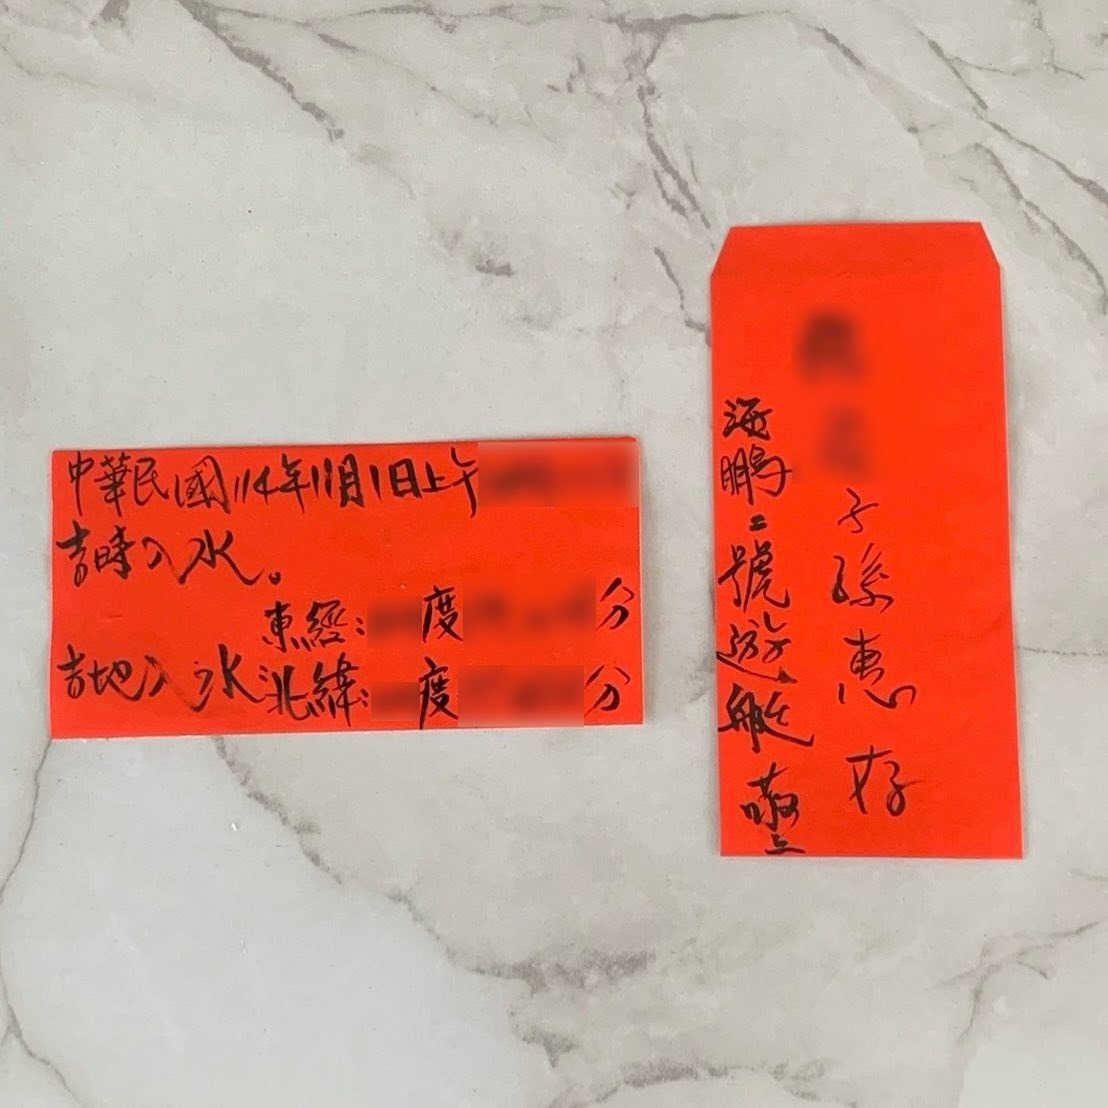 中華民國114年11月1日上午
吉時入水。
吉地入水
東經: 度 分
北緯: 度 分
子孫惠存
海鵬二號遊艇敬上